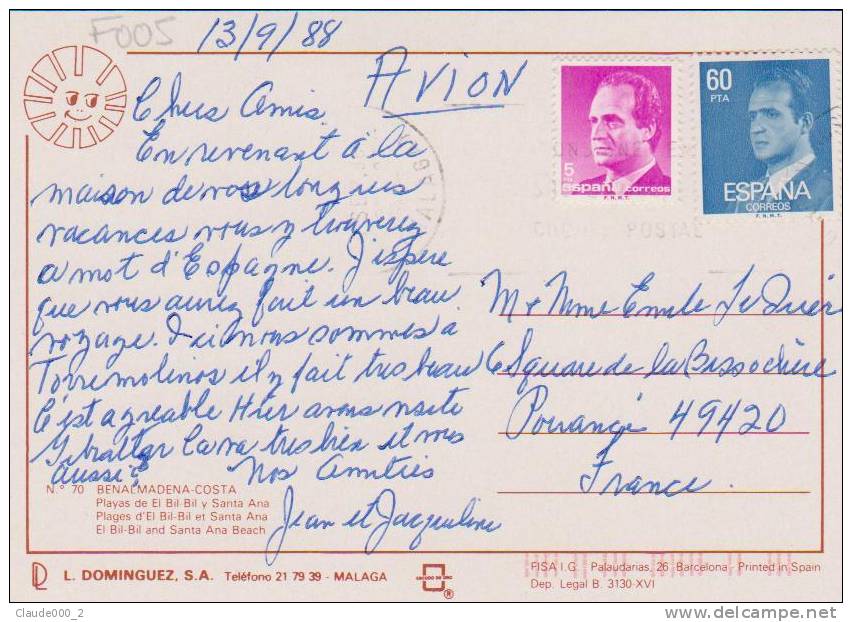 F005
13/9/88
AVION
Chers Amis
En revenant à la
maison de vos longues
vacances vous y trouverez
a mot d'Espagne. J'espère
que vous aurez fait un beau
voyage. Ici nous sommes à
Torremolinos il y fait tres beau
C'est agreable Hier avons visite
Gibraltar Ca va tres bien et vous
aussi?
Nos Amities
Jean et Jacqueline
5
PTA
españa correos
F.N.M.T.
60
PTA
ESPAÑA
CORREOS
F.N.M.T.
M + Mme Emile
6 Square de la
Pouancé 49420
France.
N.° 70 BENALMADENA-COSTA
Playas de El Bil-Bil y Santa Ana
Plages d'El Bil-Bil et Santa Ana
El Bil-Bil and Santa Ana Beach
L. DOMINGUEZ, S.A. Teléfono 21 79 39 - MALAGA
®
FISA I.G. Palaudarias, 26 Barcelona, Printed in Spain
Dep. Legal B. 3130-XVI
Claude000_2
delcampe.net